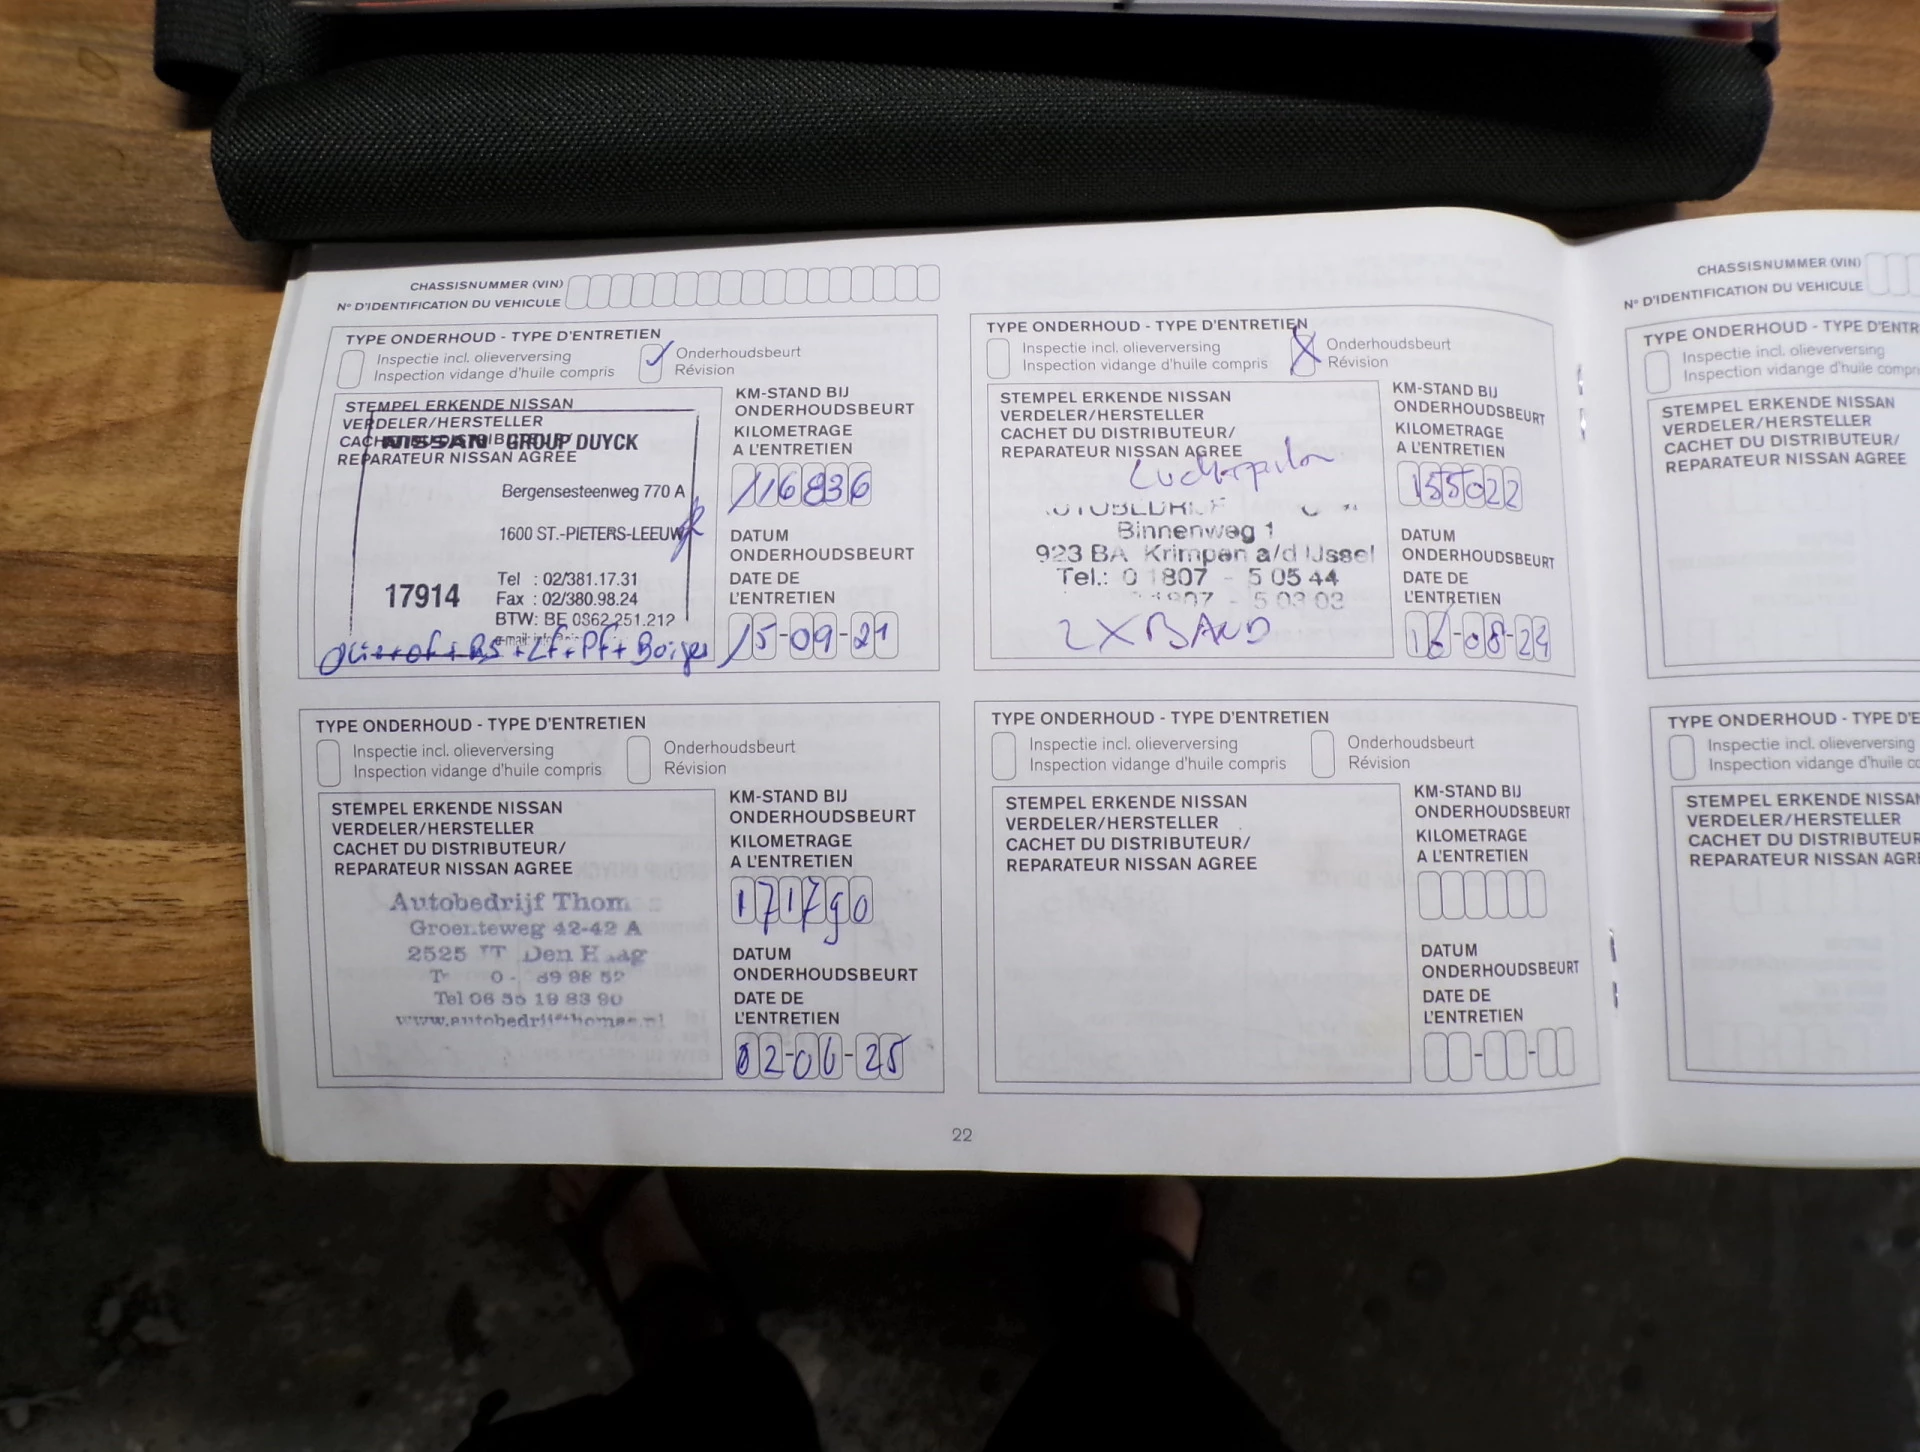 CHASSISNUMMER (VIN)
N° D'IDENTIFICATION DU VEHICULE
TYPE ONDERHOUD - TYPE D'ENTRETIEN
Inspectie incl. olieverversing
Inspection vidange d'huile compris
Onderhoudsbeurt
Révision
STEMPEL ERKENDE NISSAN
VERDELER/HERSTELLER
CACHET DU DISTRIBUTEUR/
REPARATEUR NISSAN AGREE
NISSAN GROUP DUYCK
Bergensesteenweg 770 A
1600 ST.-PIETERS-LEEUW
17914
Tel : 02/381.17.31
Fax : 02/380.98.24
BTW: BE 0862.251.212
e-mail:
+ Lf + Pf + Bougies
KM-STAND BIJ
ONDERHOUDSBEURT
KILOMETRAGE
A L'ENTRETIEN
116836
DATUM
ONDERHOUDSBEURT
DATE DE
L'ENTRETIEN
15-09-21
TYPE ONDERHOUD - TYPE D'ENTRETIEN
Inspectie incl. olieverversing
Inspection vidange d'huile compris
X
Onderhoudsbeurt
Révision
STEMPEL ERKENDE NISSAN
VERDELER/HERSTELLER
CACHET DU DISTRIBUTEUR/
REPARATEUR NISSAN AGREE
Binnenweg 1
923 BA Krimpen a/d IJssel
Tel.: 0 1807 - 5 05 44
1807 - 5 03 03
2X BAND
KM-STAND BIJ
ONDERHOUDSBEURT
KILOMETRAGE
A L'ENTRETIEN
155022
DATUM
ONDERHOUDSBEURT
DATE DE
L'ENTRETIEN
16-08-24
TYPE ONDERHOUD - TYPE D'ENTRETIEN
Inspectie incl. olieverversing
Inspection vidange d'huile compris
Onderhoudsbeurt
Révision
STEMPEL ERKENDE NISSAN
VERDELER/HERSTELLER
CACHET DU DISTRIBUTEUR/
REPARATEUR NISSAN AGREE
Autobedrijf Thomas
Groenteweg 42-42 A
2525 Den Haag
0 - 89 98 52
Tel 06 55 19 83 90
www.autobedrijfthomas.nl
KM-STAND BIJ
ONDERHOUDSBEURT
KILOMETRAGE
A L'ENTRETIEN
171790
DATUM
ONDERHOUDSBEURT
DATE DE
L'ENTRETIEN
02-06-25
TYPE ONDERHOUD - TYPE D'ENTRETIEN
Inspectie incl. olieverversing
Inspection vidange d'huile compris
Onderhoudsbeurt
Révision
STEMPEL ERKENDE NISSAN
VERDELER/HERSTELLER
CACHET DU DISTRIBUTEUR/
REPARATEUR NISSAN AGREE
KM-STAND BIJ
ONDERHOUDSBEURT
KILOMETRAGE
A L'ENTRETIEN
DATUM
ONDERHOUDSBEURT
DATE DE
L'ENTRETIEN
22
CHASSISNUMMER (VIN)
N° D'IDENTIFICATION DU VEHICULE
TYPE ONDERHOUD - TYPE D'ENTR
Inspectie incl. olieverversing
Inspection vidange d'huile compri
STEMPEL ERKENDE NISSAN
VERDELER/HERSTELLER
CACHET DU DISTRIBUTEUR/
REPARATEUR NISSAN AGREE
TYPE ONDERHOUD - TYPE D'E
Inspectie incl. olieverversing
Inspection vidange d'huile co
STEMPEL ERKENDE NISSAN
VERDELER/HERSTELLER
CACHET DU DISTRIBUTEUR
REPARATEUR NISSAN AGRE